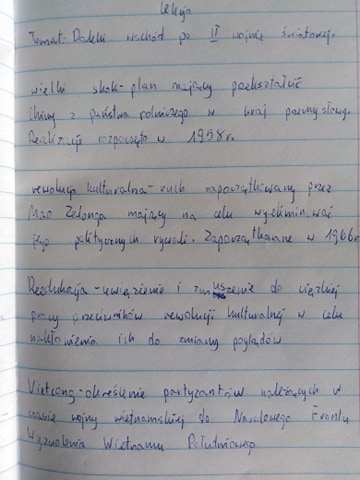 Lekcja
Temat: Daleki wschód po II wojnie światowej.
wielki skok-plan mający przekształcić
Chiny z państwa rolniczego w kraj przemysłowy.
Realizację rozpoczęto w 1958r.
rewolucja kulturalna-ruch zapoczątkowany przez
Mao Zedonga mający na celu wyeliminować
jego politycznych rywali. Zapoczątkowane w 1966r.
Reedukacja-uwięzienie i zmuszenie do ciężkiej
pracy przeciwników rewolucji kulturalnej w celu
nakłonienia ich do zmiany poglądów
Vietcong-określenie partyzantów należących w
czasie wojny wietnamskiej do Narodowego Frontu
Wyzwolenia Wietnamu Południowego